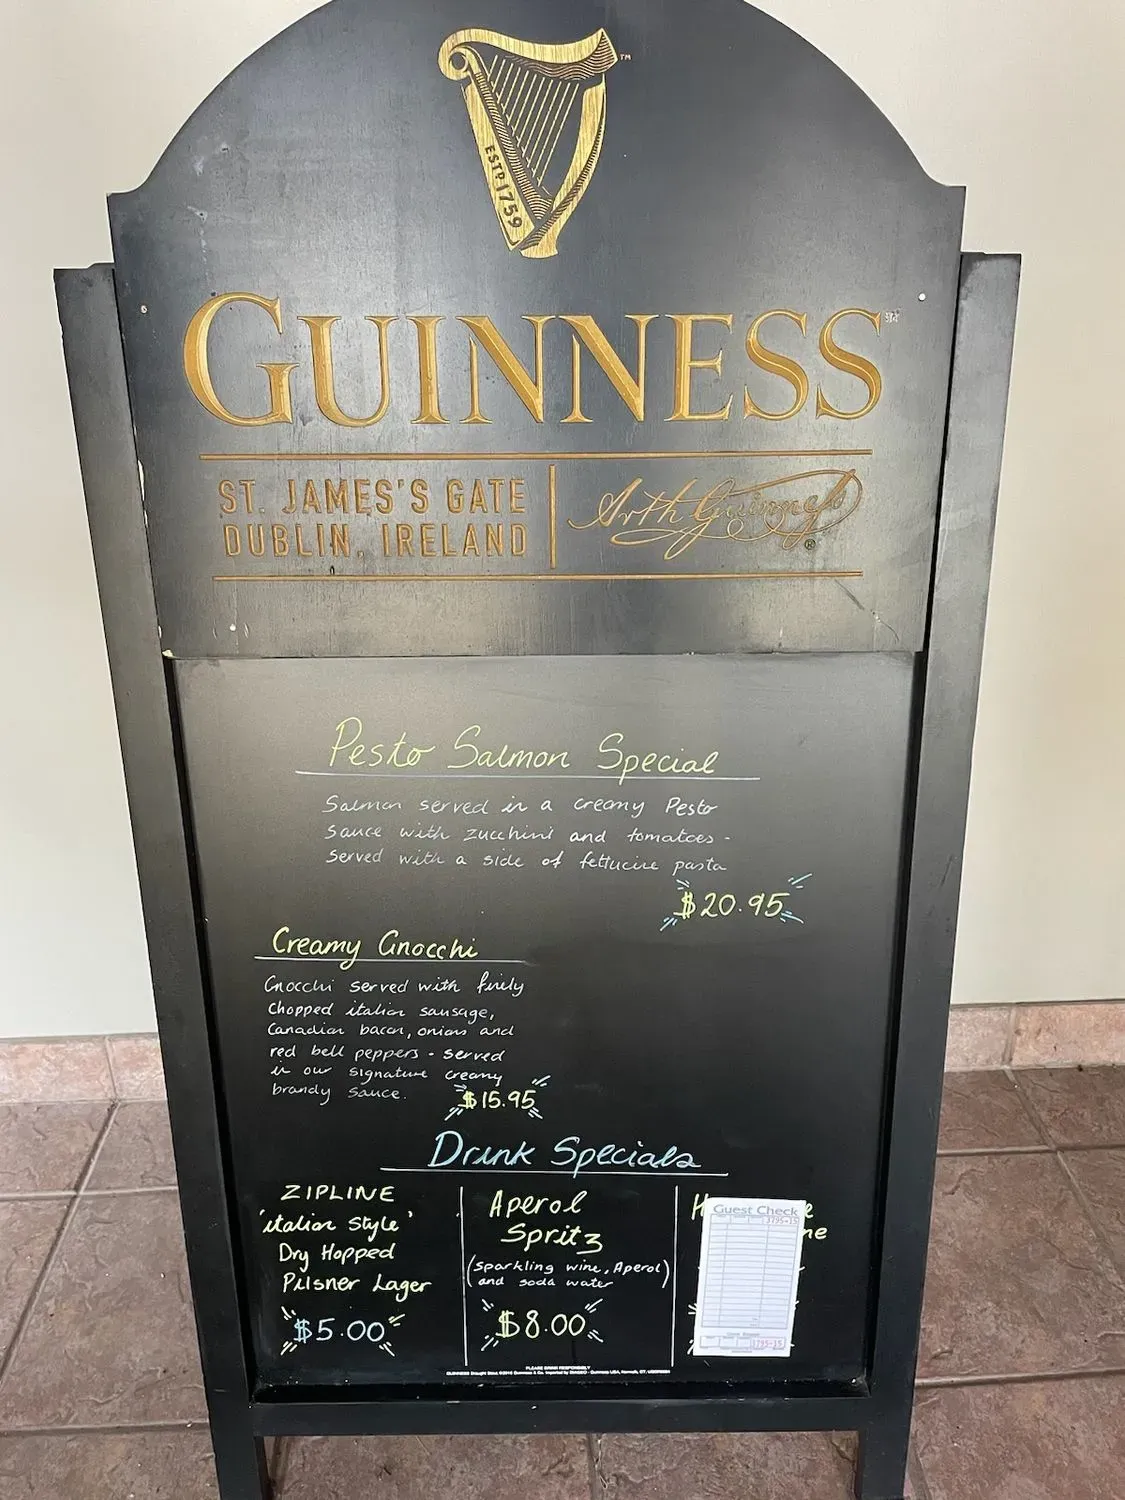 ESTD 1759
TM
GUINNESS
ST. JAMES'S GATE
DUBLIN, IRELAND
Arth Guinness
®
Pesto Salmon Special
Salmon served in a creamy Pesto
sauce with zucchini and tomatoes -
served with a side of fettucine pasta
$20.95
Creamy Gnocchi
Gnocchi served with finely
chopped italian sausage,
Canadian bacon, onions and
red bell peppers - served
in our signature creamy
brandy sauce.
$15.95
Drink Specials
ZIPLINE
'italian style'
Dry Hopped
Pilsner Lager
$5.00
Aperol
Spritz
(sparkling wine, Aperol
and soda water)
$8.00
Guest Check
3795-15
3795-15
PLEASE DRINK RESPONSIBLY